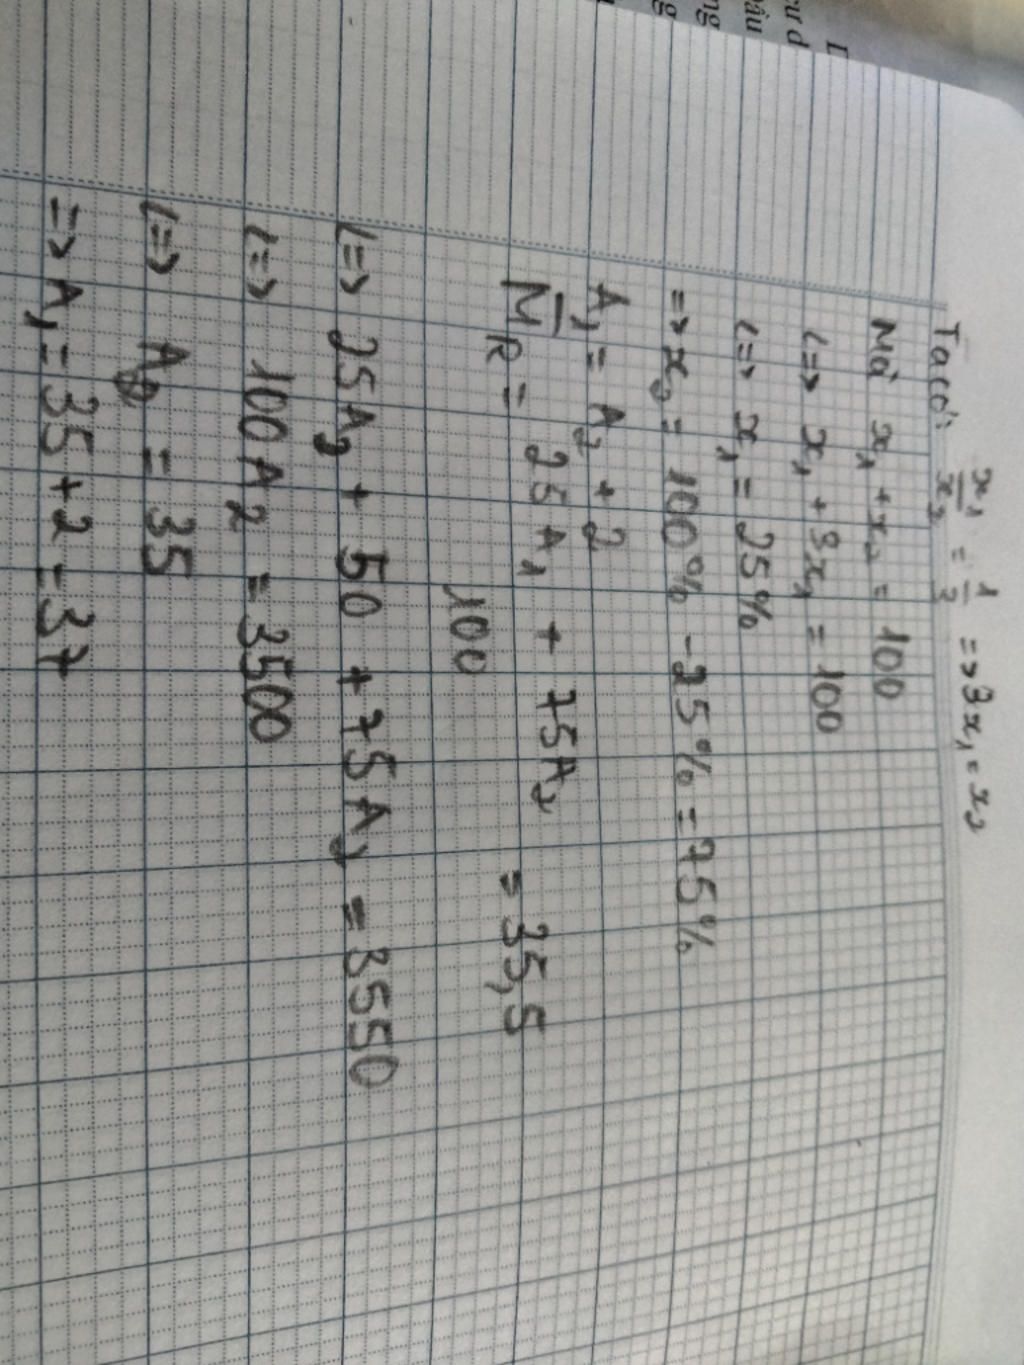 Ta có: x₁/x₂ = 1/3 => 3x₁ = x₂
Mà x₁ + x₂ = 100
<=> x₁ + 3x₁ = 100
<=> x₁ = 25%
=> x₂ = 100% - 25% = 75%
A₁ = A₂ + 2
M̅R = (25A₁ + 75A₂)/100 = 35,5
<=> 25A₂ + 50 + 75A₂ = 3550
<=> 100A₂ = 3500
<=> A₂ = 35
=> A₁ = 35 + 2 = 37